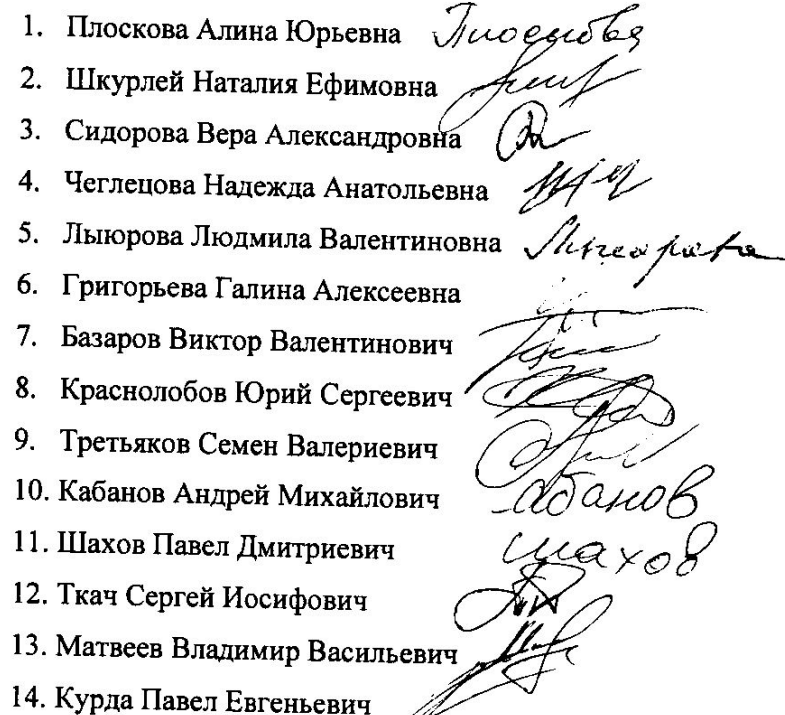 1. Плоскова Алина Юрьевна
2. Шкурлей Наталия Ефимовна
3. Сидорова Вера Александровна
4. Чеглецова Надежда Анатольевна
5. Лыюрова Людмила Валентиновна
6. Григорьева Галина Алексеевна
7. Базаров Виктор Валентинович
8. Краснолобов Юрий Сергеевич
9. Третьяков Семен Валериевич
10. Кабанов Андрей Михайлович абанов
11. Шахов Павел Дмитриевич шахов
12. Ткач Сергей Иосифович
13. Матвеев Владимир Васильевич
14. Курда Павел Евгеньевич